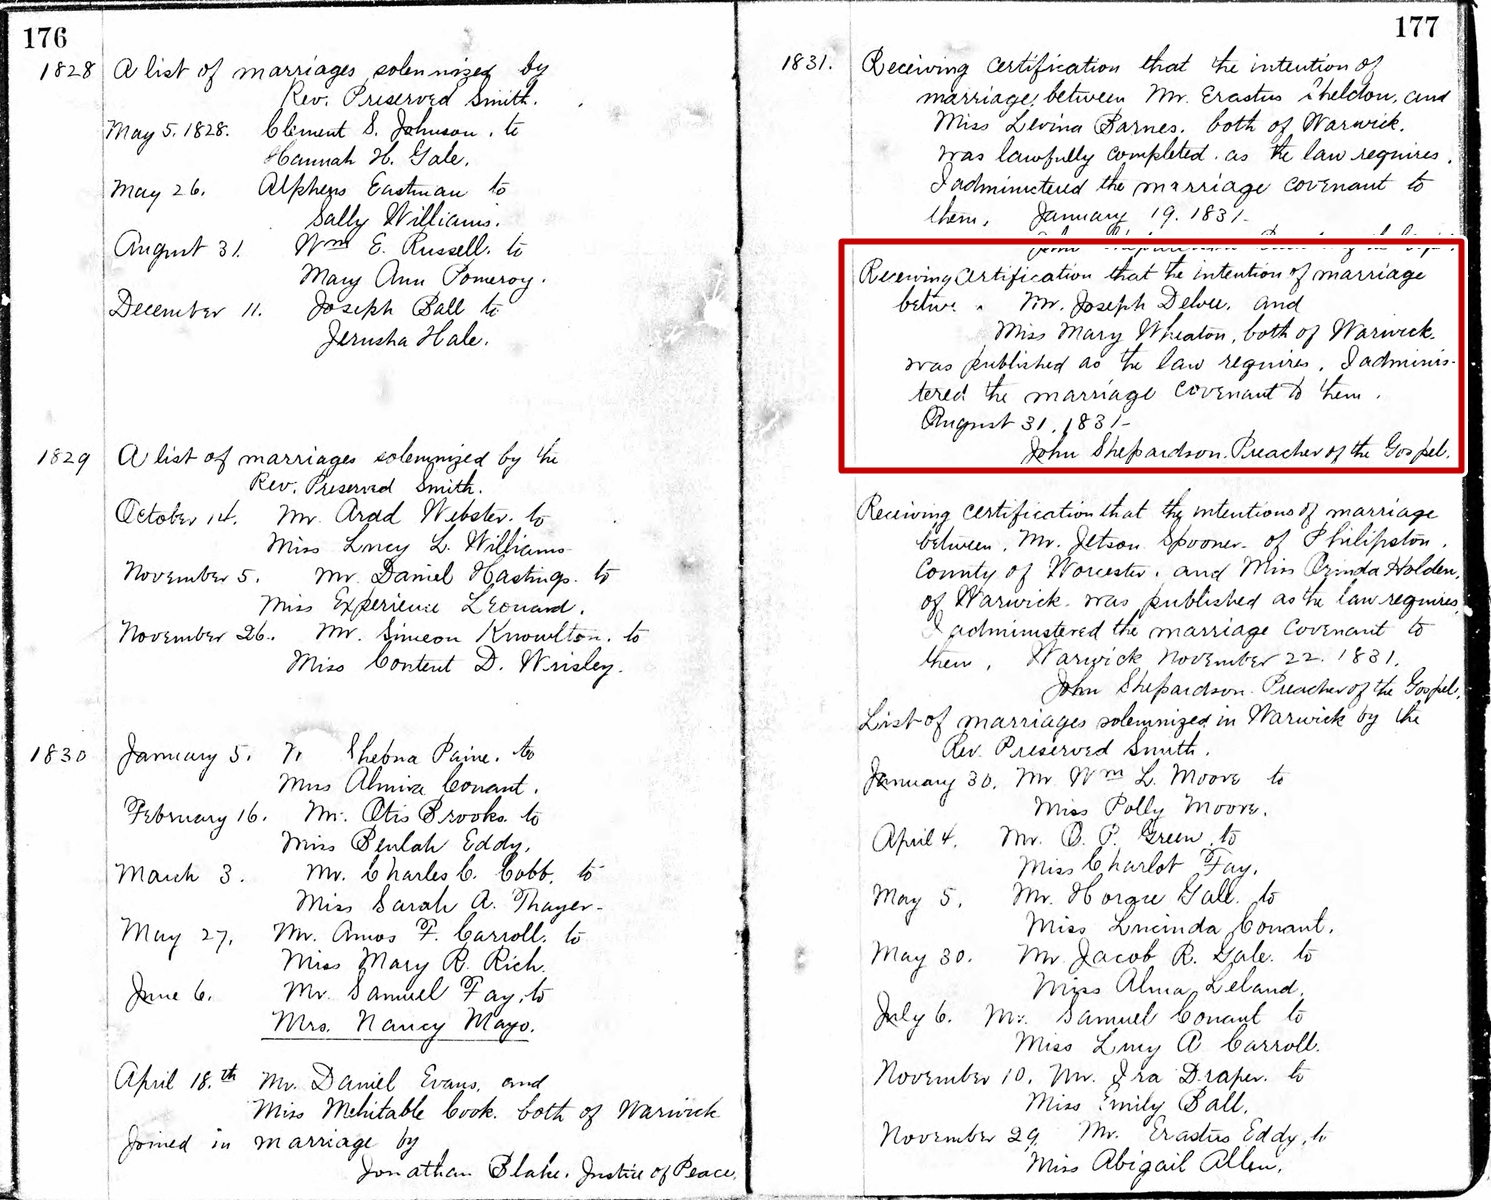 176
1828 A list of marriages solemnized by
Rev. Preserved Smith.
May 5. 1828. Clement S. Johnson. to
Hannah H. Gale.
May 26. Alphens Eastman to
Sally Williams.
August 31. Wm E. Russell. to
Mary Ann Pomeroy.
December 11. Joseph Ball to
Jerusha Hale.
1829 A list of marriages solemnized by the
Rev. Preserved Smith.
October 14. Mr. Arad Webster. to
Miss Lucy L. Williams
November 5. Mr. Daniel Hastings. to
Miss Experience Leonard.
November 26. Mr. Simeon Knowlton. to
Miss Content D. Wrisley.
1830 January 5. Shebna Paine. to
Miss Almira Conant.
February 16. Mr. Otis Brooks. to
Miss Beulah Eddy.
March 3. Mr. Charles C. Cobb. to
Miss Sarah A. Thayer-
May 27. Mr. Amos F. Carroll. to
Miss Mary R. Rich.
June 6. Mr. Samuel Fay. to
Mrs. Nancy Mayo.
April 18.th Mr. Daniel Evans. and
Miss Mehitable Cook. both of Warwick
Joined in marriage by
Jonathan Blake. Justice of Peace.
177
1831. Receiving certification that the intention of
marriage between Mr. Erastus Sheldon. and
Miss Levina Barnes. both of Warwick.
was lawfully completed. as the law requires.
I administered the marriage covenant to
them. January 19. 1831-
John
Receiving certification that the intention of marriage
Mr. Joseph and
Miss Mary Wheaton, both of Warwick.
was published as the law requires. I adminis-
tered the marriage covenant to them.
August 31, 1831-
John Shepardson. Preacher of the Gospel.
Receiving certification that the intentions of marriage
between. Mr. Jetson Spooner- of Philipston.
County of Worcester. and Miss Holden,
of Warwick. was published as the law requires,
I administered the marriage covenant to
them. Warwick November 22. 1831.
John Shepardson. Preacher of the Gospel.
List of marriages solemnized in Warwick by the
Rev. Preserved Smith.
January 30. Mr. Wm L. Moore to
Miss Polly Moore.
April 4. Mr. O. P. Green. to
Miss Charlot Fay.
May 5. Mr. Horace Gale. to
Miss Lucinda Conant.
May 30. Mr. Jacob R. Gale. to
Miss Alma Leland.
July 6. Mr. Samuel Conant to
Miss Lucy A Carroll.
November 10. Mr. Ira Draper. to
Miss Emily Ball.
November 29. Mr. Erastus Eddy, to
Miss Abigail Allen.